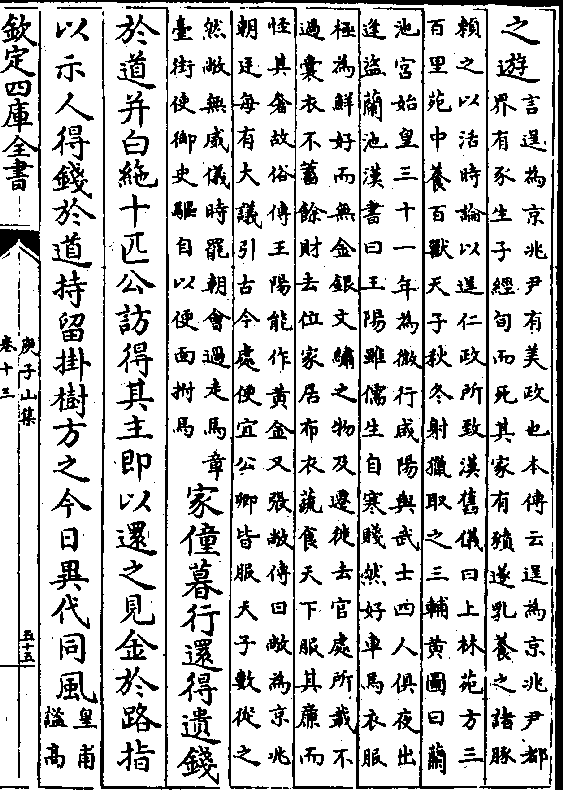 之遊
言逞為京兆尹有美政也本傳云逞為京兆尹都
界有豕生子經旬而死其家有豶遂乳養之諸豚
賴之以活時論以逞仁政所致漢舊儀曰上林苑方三
百里苑中養百獸天子秋冬射獵取之三輔黃圖曰蘭
池宮始皇三十一年為微行咸陽與武士四人俱夜出
逢盜蘭池漢書曰王陽雖儒生自寒賤然好車馬衣服
極為鮮好而無金銀文繡之物及遷徙去官處所載不
過囊衣不蓄餘財去位家居布衣蔬食天下服其廉而
怪其奢故俗傳王陽能作黃金又張敞傳曰敞為京兆
朝廷每有大議引古今處便宜公卿皆服天子數從之
然敞無威儀時罷朝會過走馬章
臺街使御史驅自以便面拊馬
家僮暮行還得遺錢
於道并白絁十匹公訪得其主即以還之見金於路指
以示人得錢於道持留掛樹方之今日異代同風
皇甫
謐高
欽定四庫全書
庾子山集
卷十三
五十五